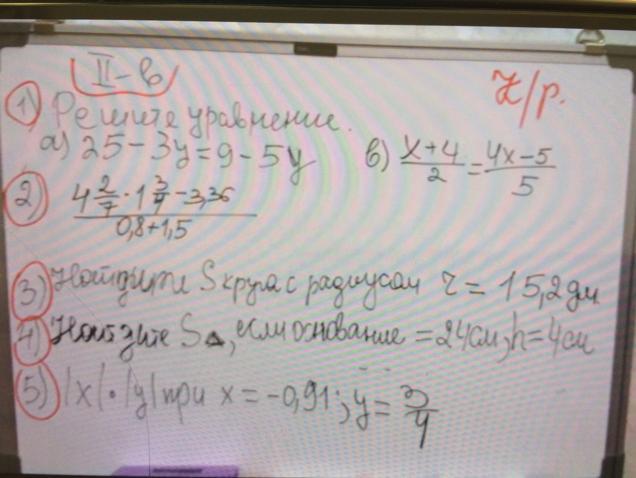 II-в
К/р.
1) Решите уравнение.
а) 25-3y=9-5y в) x+4/2=4x-5/5
2) 4 2/7·1 3/4-3,36/0,8+1,5
3) Найдите S круга с радиусом r=15,2дм
4) Найдите S△, если основание =24см, h=4см
5) |x|·|y| при x=-0,91; y=3/4